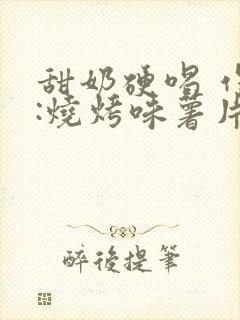 甜奶硬唱
:燒烤味薯片
醉後提筆